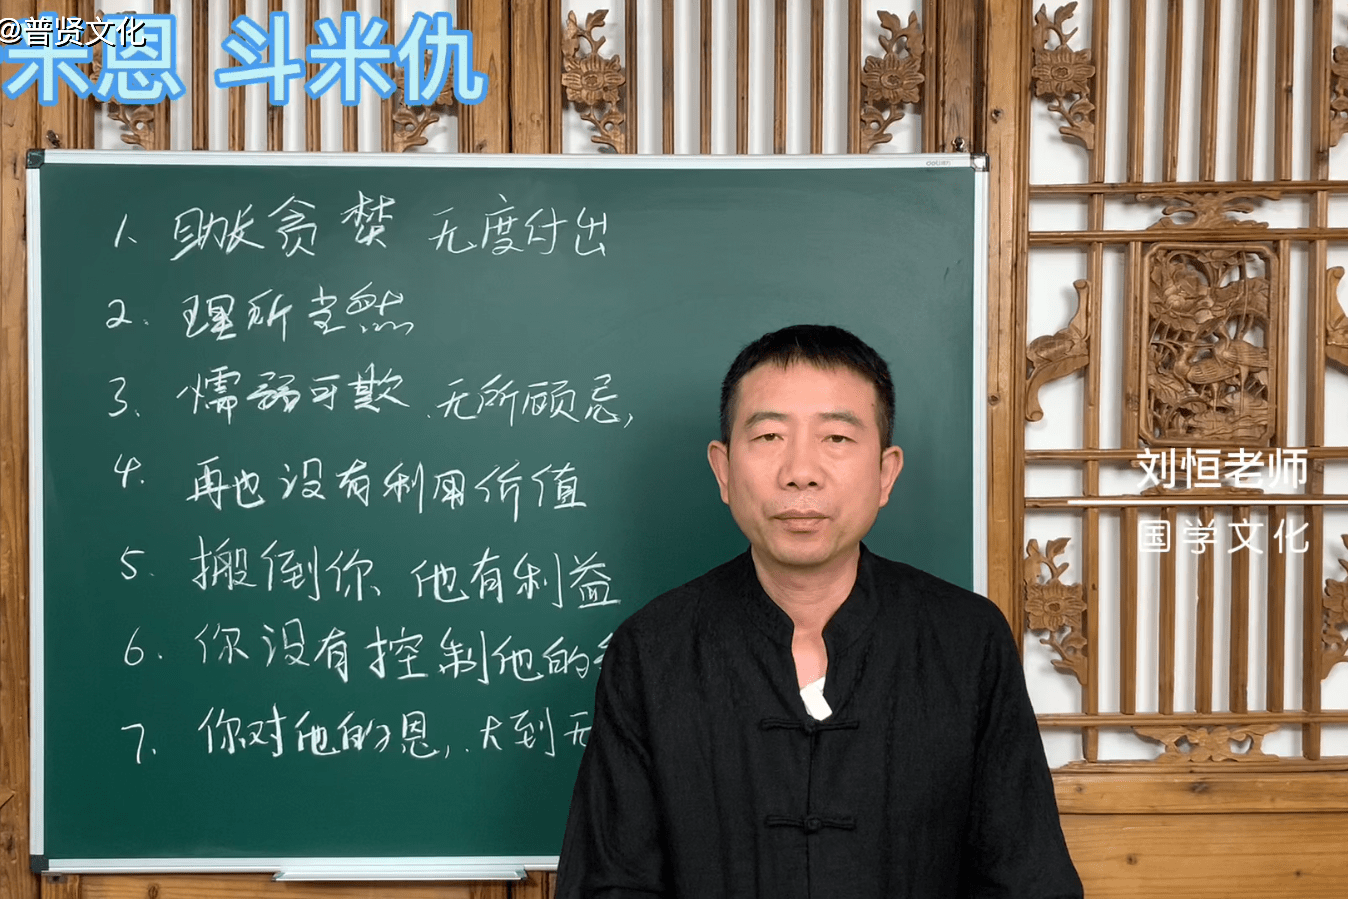 @普贤文化
米恩 斗米仇
deli得力
1. 助长贪婪 无度付出
2. 理所当然
3. 懦弱可欺、无所顾忌,
4. 再也没有利用价值
5. 搬倒你 他有利益
6. 你没有控制他的
7. 你对他的恩, 大到无
刘恒老师
国学文化